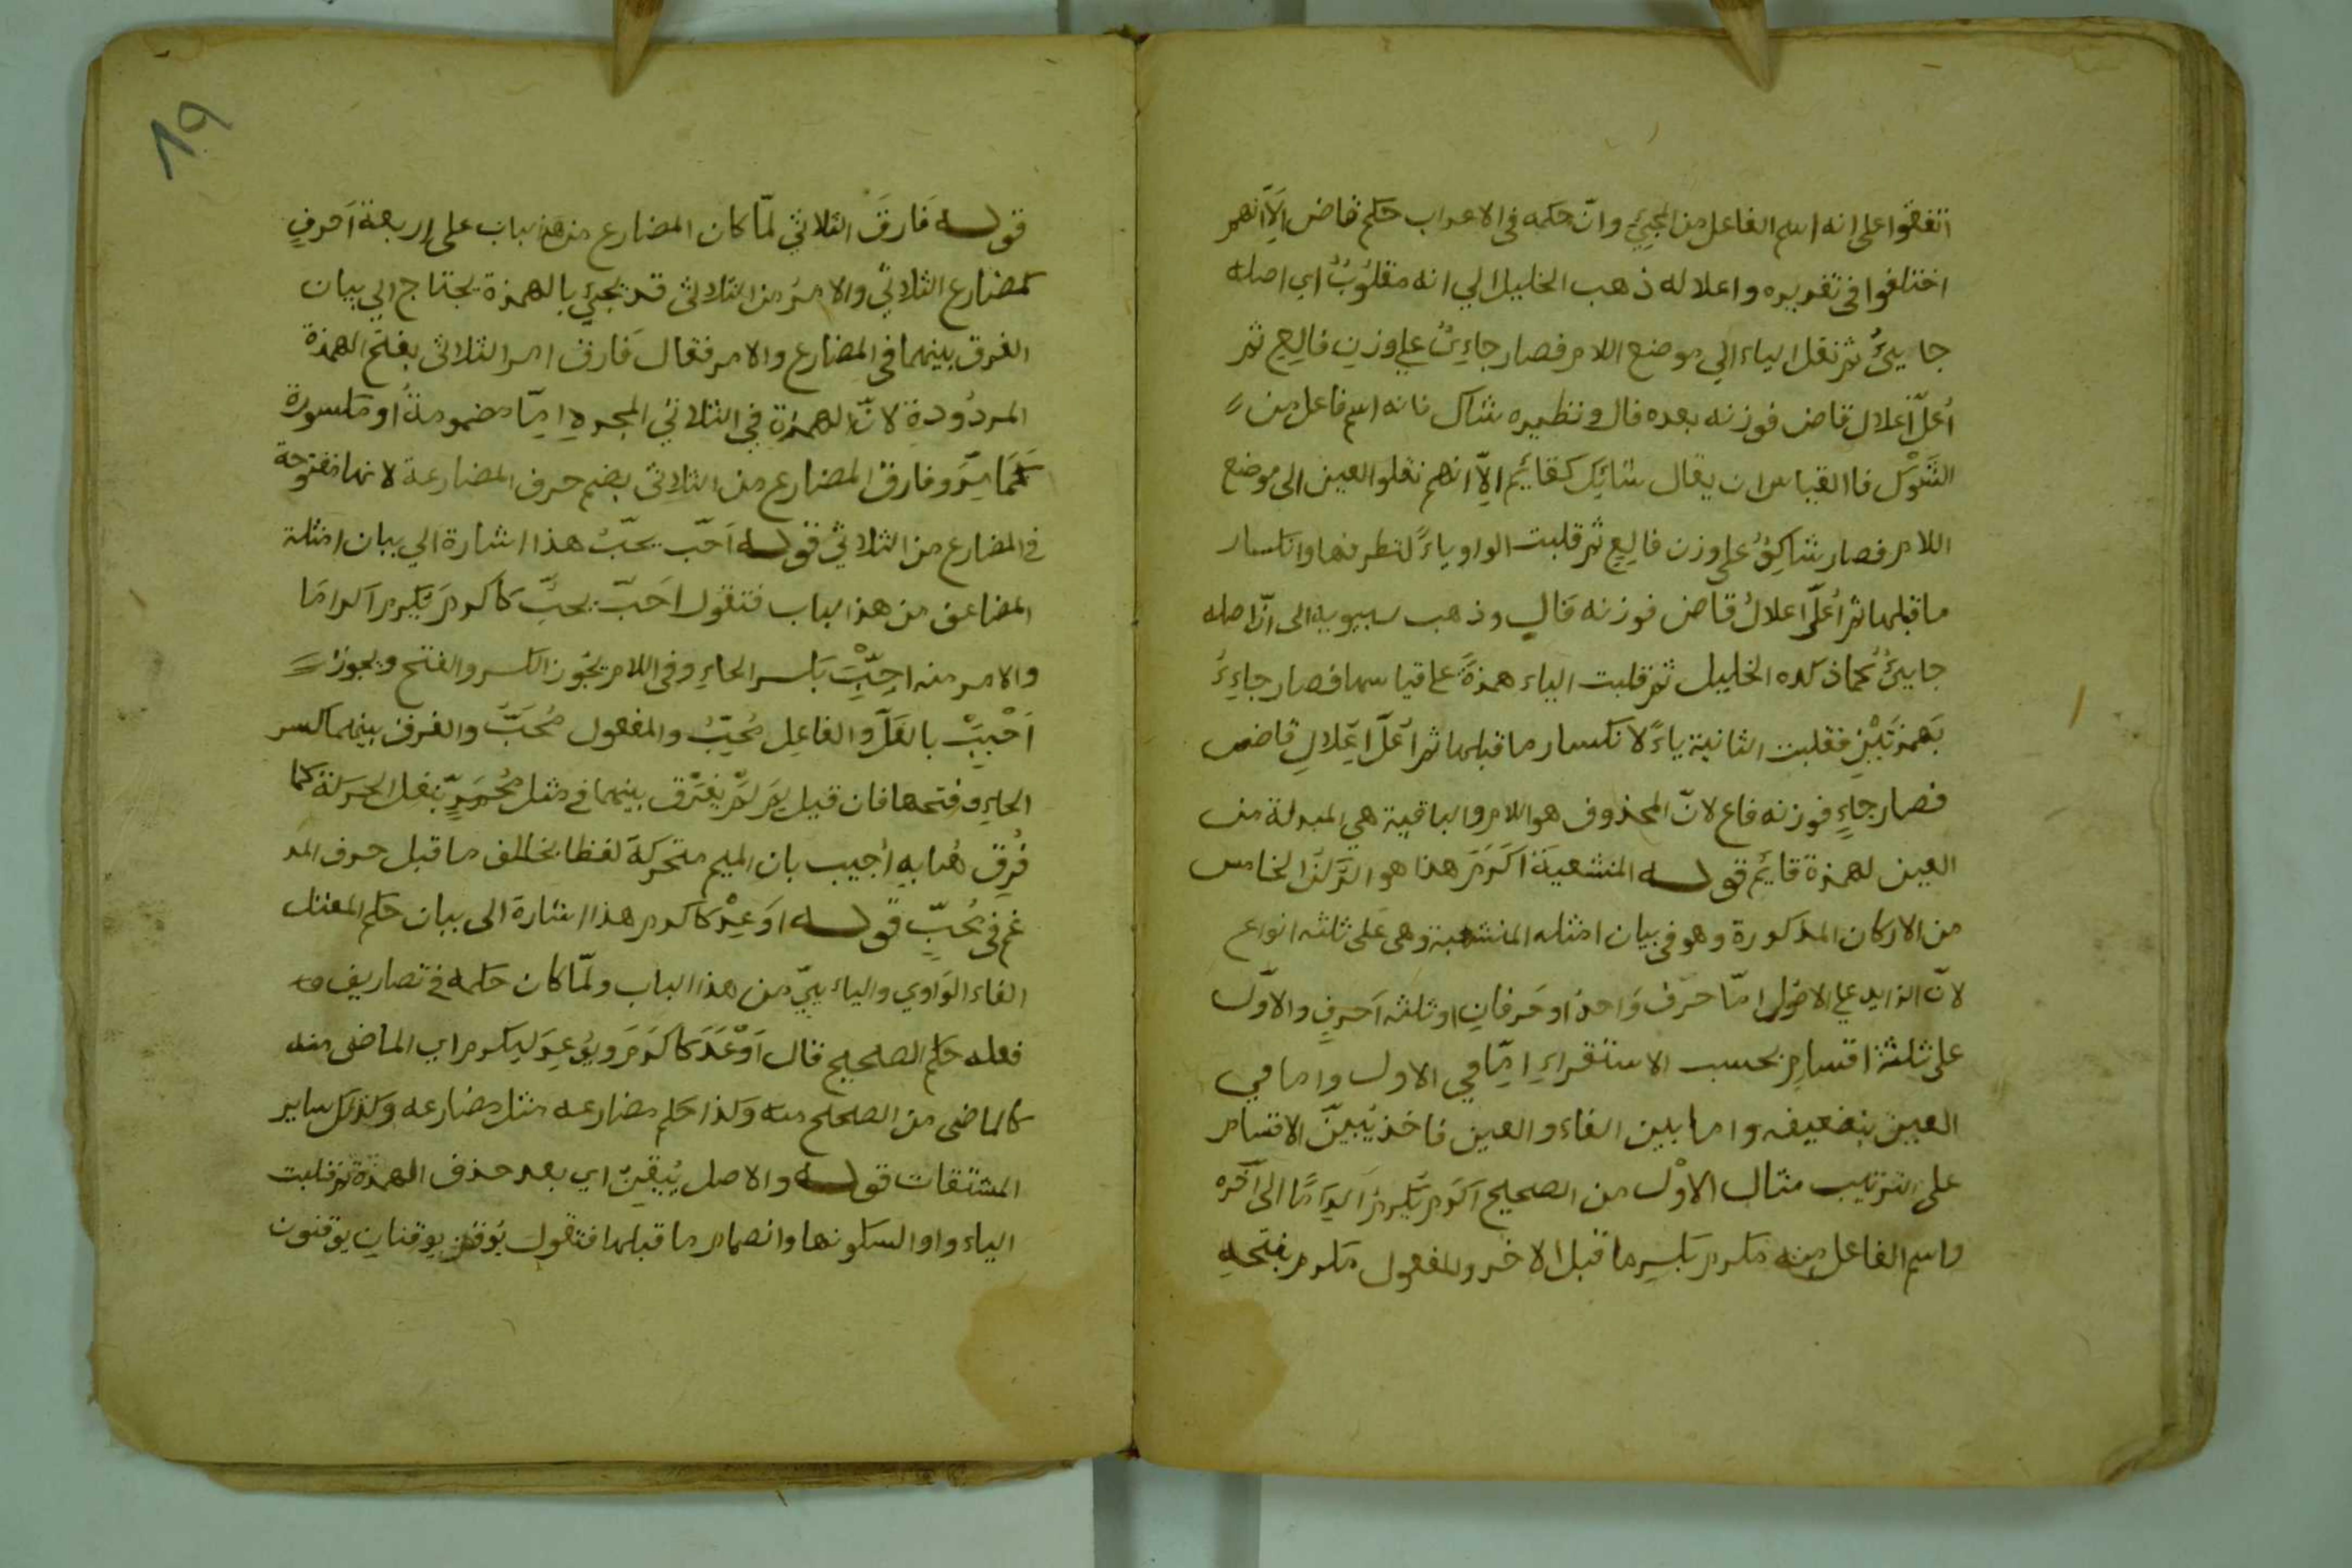 اتفقوا على انه اسم الفاعل من المجيئ وانّ حكمه فى الاعراب حكم قاض الّا انهم
اختلفوا فى تقديره واعلاله ذهب الخليل الي انه مقلوبٌ اي اصله
جايئٌ ثم نقل الياء الي موضع اللام فصار جاءِيٌ علي وزن فالِعٍ ثم
أعلّ اعلال قاض فوزنه بعده فال ونظيره شاك فانه اسم فاعل من
الشَّوْك فاالقياس ان يقال شائِك كقائِم الّا انهم نقلوا العين الى موضع
اللام فصار شاكِوٌ على وزن فالِع ثم قلبت الواو ياءً لتطرفها وانكسار
ما قبلها ثم أعلّ اعلالُ قاض فوزنه فَالٍ وذهب سيبويه الى انّ اصله
جايئٌ كما ذكره الخليل ثم قلبت الياء همزةً على قياسها فصار جاءِءٌ
بهمزتَيْنِ فقلبت الثانية ياءً لانكسار ما قبلها ثم أعلّ اعلالِ قاضٍ
فصار جاءٍ فوزنه فاع لانّ المحذوف هو اللام والباقية هي المبدلة من
العين لهمزة قايَم قوله المنشعبة اكَرَمَ هذا هو الرّكن الخامس
من الاركان المذكورة وهو فى بيان امثله المنشعبة وهى على ثلثه انواع
لانّ الزايد علي الاصُول امّا حرْف وَاحدٌ او حَرفانِ او ثلثه اَحرفٍ والاوّل
على ثلثة اقسامٍ بحسب الاستقراءِ امّا في الاول واما في
العين بتضعيفه واما بين الفاء والعين فاخذ يُبيّن الاقسام
على الترتيب مثال الاوْل من الصحيح اكرَمَ يُكرِمُ اكرَامًا الى آخره
واسم الفاعل منه مكرم بكسِرِ ما قبل الاخر والمفعول مكرم بفتحهِ
١٩
قوله فَارقَ الثلاثي لمّا كان المضارع من هذ باب على اربعة اَحرفٍ
كمضارع الثلاثي والامرُ من الثلاثى قد يجيئ بالهمزة يحتاج الي بيان
الفرق بينهما فى المضارع والامر فقال فَارق امر الثلاثى بفتح الهمزة
المردُودةِ لانّ الهمزة في الثلاثي المجرد امّا مضمومةٌ او مكسورة
كَمَا مِرَّ وفارق المضارع من الثلاثى بضم حرف المضارعة لانها مفتوحة
فى المضارع من الثلاثي قوله اَحَبّ يحبّ هذا اشارة الي بيان امثلة
المضاعف من هذ الباب فتقول احَبّ يحبِّ كاكرمَ يُكرِم اكرامًا
والامر منه احِبَّ بكسر الحاءِ وفى اللام يجُوز الكسر والفتح ويجوز
اَحْبِبْ بالفَكّ والفاعِل مُحِبٌّ والمفعول مُحَبٌّ والفرق بينهما كسر
الحاءِ وفتحها فان قيل لِمَ لَمْ يفترْق بينهما فى مثل مُحْمَرٍّ بنقل الحركة كما
فُرِق هُنا بهِ أجيب بان الميم متحركة لفظا بخالف ما قبل حرف المد
غم فى مُحبٍّ قوله اوَعِدْ كاكرم هذا اشارة الى بيان حكم المعتل
الفاء الوَاوي والياء ييّ من هذ الباب ولمّا كان حكمه فى تصاريف
فعله حكم الصحيح قال اَوْعَدَ كاكرَمَ ويوُعِدَ ليكرم اى الماضى منه
كالماضى من الصحيح منه وكذا حكم مضارعه مثل مضارعه وكذلك ساير
المشتقات قوله والاصل يُيقِن اي بعد حذف الهمزة ثم قلبت
الياء واوا لسكونها وانضمام ما قبلها فتقول يُوقن يوقنانِ يوقنون